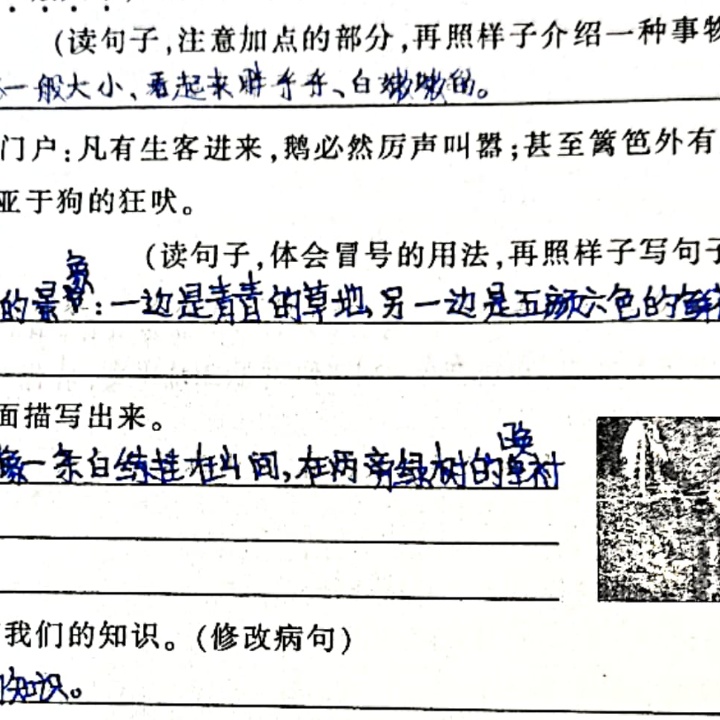 (读句子,注意加点的部分,再照样子介绍一种事物
一般大小、看起来胖乎乎、白嫩嫩的。
门户:凡有生客进来,鹅必然厉声叫嚣;甚至篱笆外有
亚于狗的狂吠。
(读句子,体会冒号的用法,再照样子写句子
象
的景:一边是青青的草地,另一边是五颜六色的鲜
面描写出来。
像一条白练挂在山间,在两旁绿树的衬
我们的知识。(修改病句)
知识。